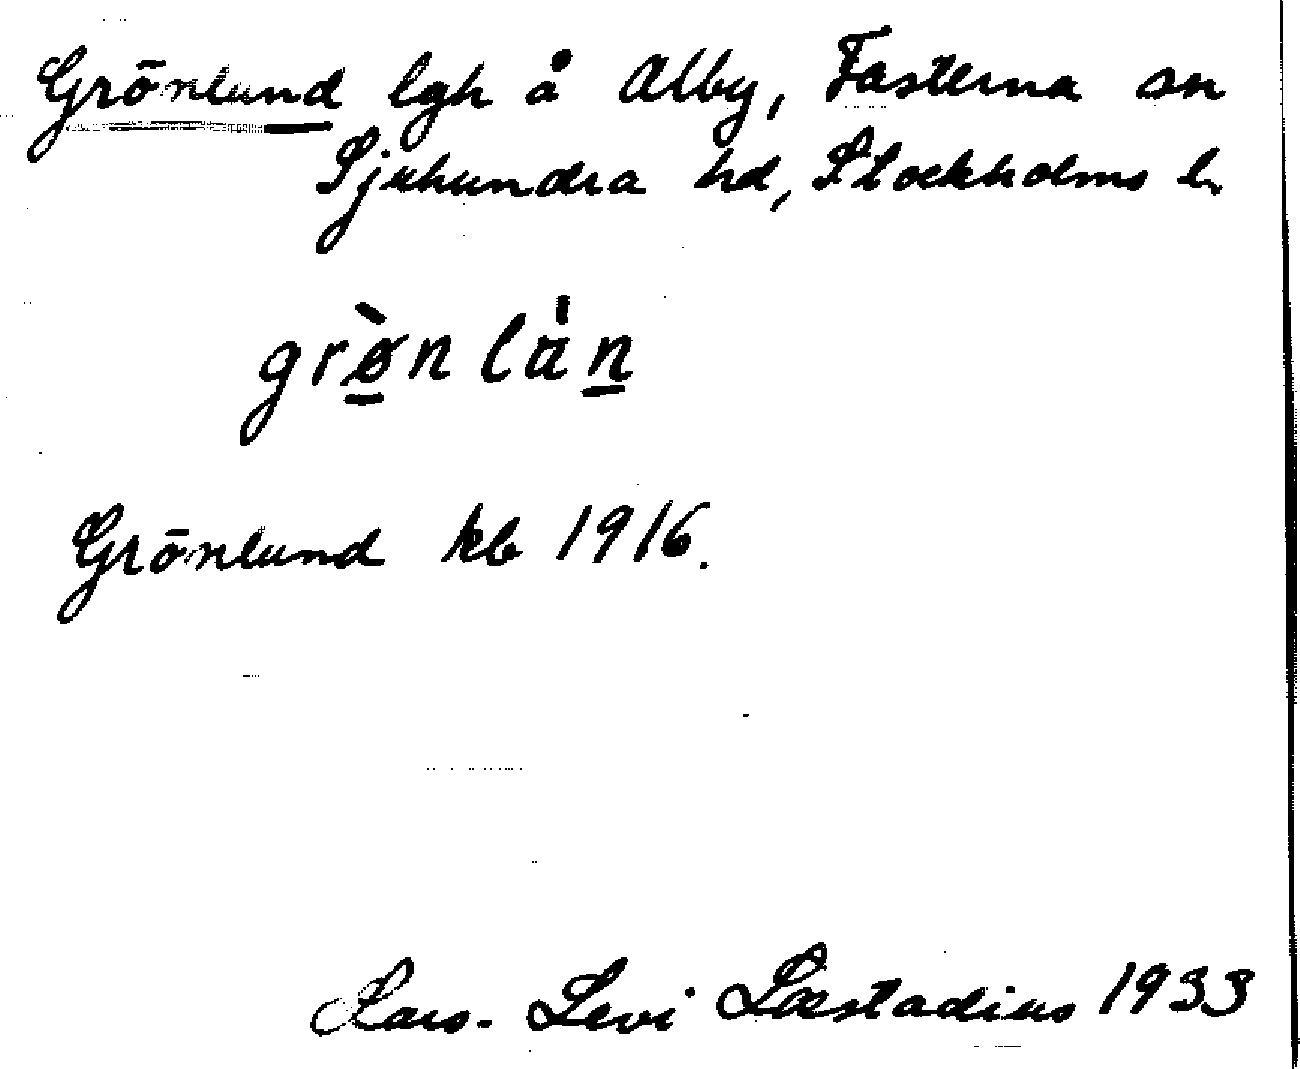 Grönlund lgh å Alby, Fasterna sn
Sjuhundra hd, Stockholms l.
grø̀nlán
Grönlund kb 1916.
Lars-Levi Læstadius 1933